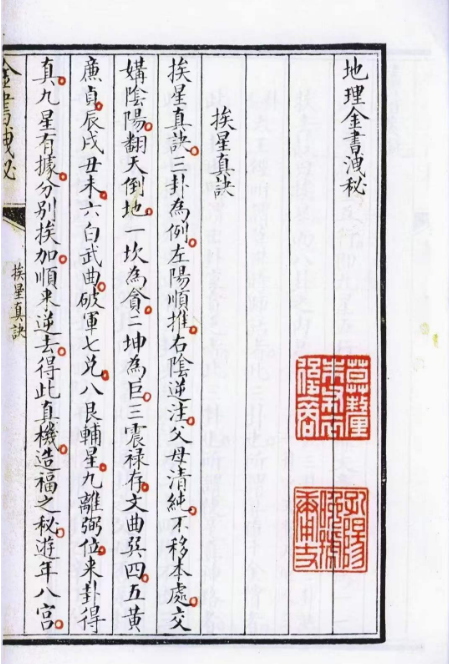 地理金書洩秘
挨星真訣
挨星真訣三卦為例左陽順推右陰逆注父母清純不移本處交
媾陰陽翻天倒地一坎為貪二坤為巨三震禄存文曲巽四五黃
廉貞辰戌丑未六白武曲破軍七兌八艮輔星九離弼位来卦得
真九星有據分別挨加順来逆去得此真機造福之秘遊年八宮
金書洩秘
挨星真訣